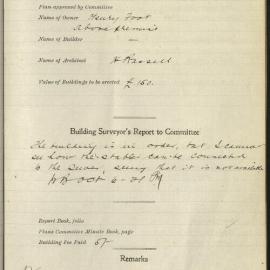 Plan approved by Committee
Name of Owner Henry Foot
Above premises
Name of Builder —
Name of Architect A Russell
Value of Buildings to be erected £ 150.
Building Surveyor's Report to Committee
The building is in order, but I cannot
see how the stables can be connected
to the sewer, seeing that it is not available
Oct 6
Report Book, folio
Plans Committee Minute Book, page
Building Fee Paid 5/-
Remarks